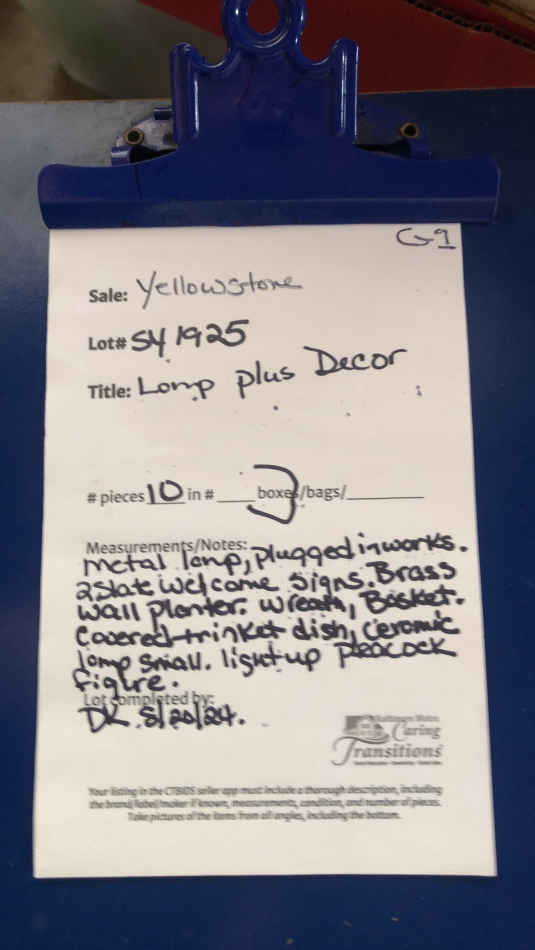 G1
Sale: Yellowstone
Lot# SY1925
Title: Lamp plus Decor
# pieces 10 in # ____ boxes/bags/________
Measurements/Notes:
metal lamp, plugged in works.
2 slate welcome signs. Brass
wall planter. wreath, Basket.
Covered trinket dish, ceramic
lamp small. light up peacock
figure.
Lot completed by:
DK 8/20/24.
Caring
Transitions
Your listing in the CTBIDS seller app must include a thorough description, including
the brand/label/maker if known, measurements, condition, and number of pieces.
Take pictures of the items from all angles, including the bottom.